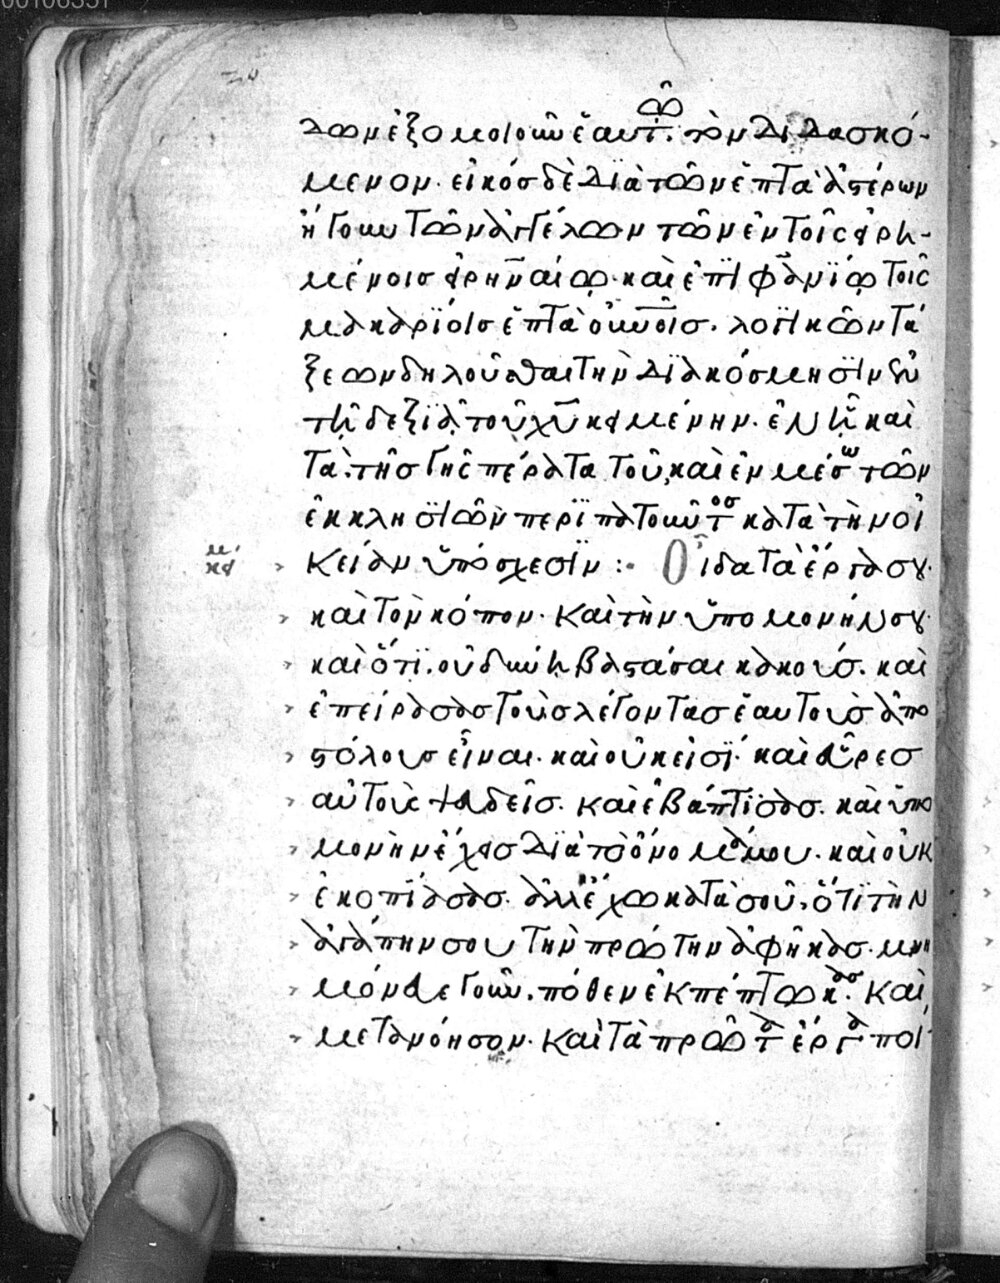 00106351
δων ἐξομοιοῖ ἑαυτῷ τὸν διδασκό-
μενον. εἰκὸς δὲ διὰ τῶν ἑπτὰ ἀστέρων
ἤγουν τῶν ἀγγέλων τῶν ἐν τοῖς εἰρη-
μένοις εἰρηναίῳ. καὶ ἐπιφανίῳ τοῖς
μακαρίοις ἑπτὰ οὐνοῖς. λογικῶν τά
ξεων δηλοῦσθαι τὴν διακόσμησιν ἐν
τῇ δεξιᾷ τοῦ χυ κειμένην. ἐν ᾗ καὶ
τὰ τῆς γῆς πέρατα τοῦ, καὶ ἐν μέσω τῶν
ἐκκλησιῶν περιπατοῦντος κατὰ τὴν οἰ
κείαν ὑπόσχεσιν :· Οἶδα τὰ ἔργα σου.
καὶ τὸν κόπον. καὶ τὴν ὑπομονήν σου.
καὶ ὅτι. οὐ δύνῃ βαστάσαι κακούς. καὶ
ἐπείρασας τοὺς λέγοντας ἑαυτοὺς ἀπο
στόλους εἶναι. καὶ οὐκ εἰσί. καὶ εὗρες
αὐτοὺς ψευδεῖς. καὶ ἐβάπτισας. καὶ ὑπο
μονὴν ἔχεις διὰ τὸ ὄνομά μου. καὶ οὐκ
ἐκοπίασας. ἀλλ' ἔχω κατὰ σοῦ, ὅτι τὴν
ἀγάπην σου τὴν πρώτην ἀφῆκας. μνη
μόνευε γοῦν. πόθεν ἐκπέπτωκας. καὶ
μετανόησον. καὶ τὰ πρῶτα ἔργα ποί